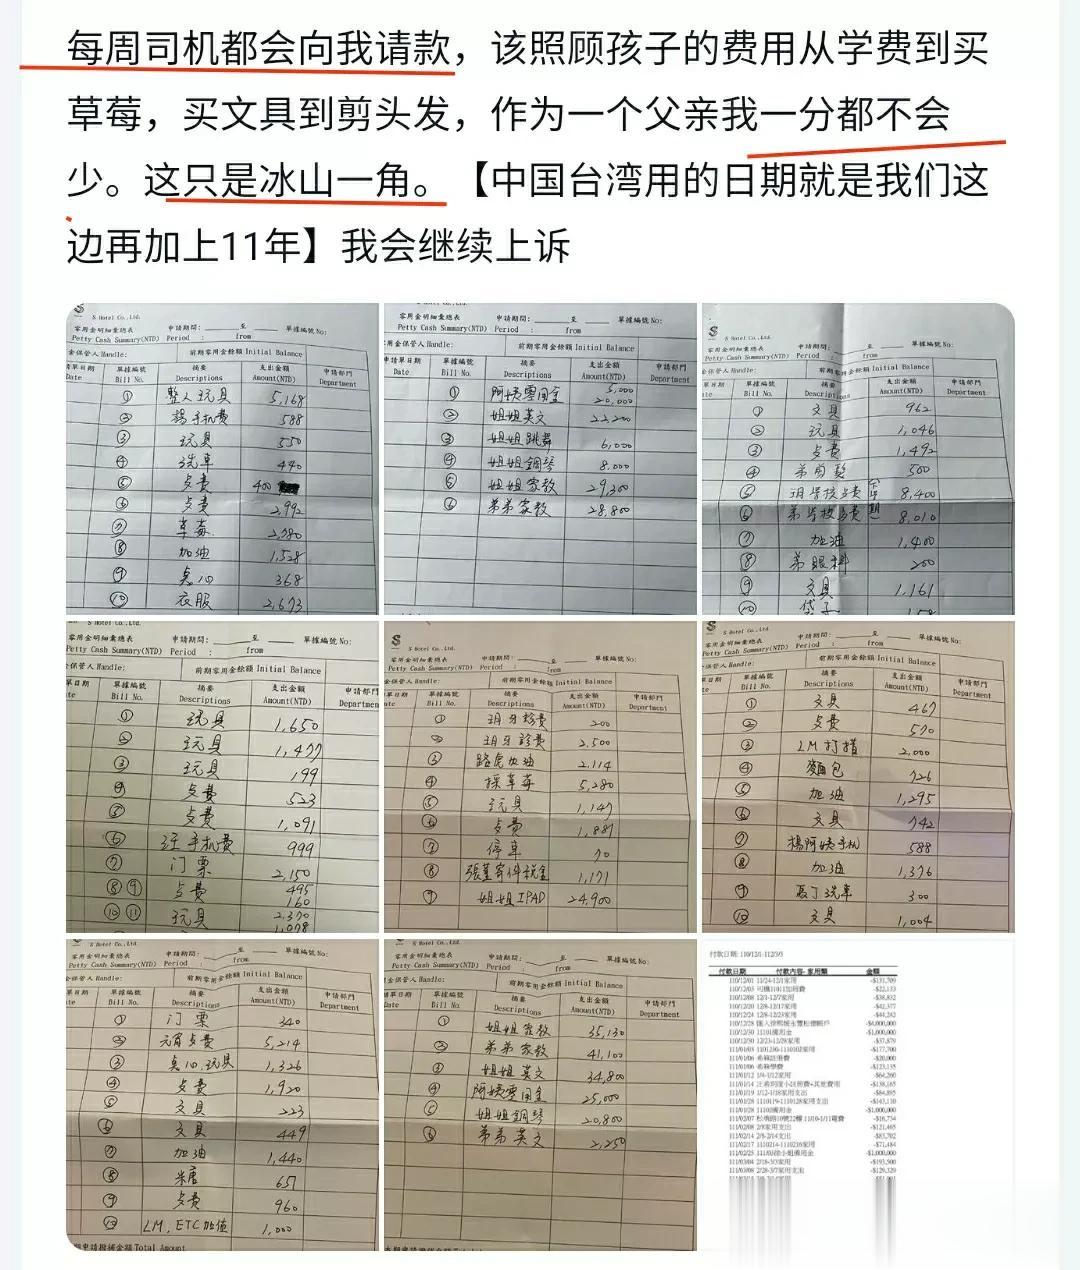 每周司机都会向我请款，该照顾孩子的费用从学费到买
草莓，买文具到剪头发，作为一个父亲我一分都不会
少。这只是冰山一角。【中国台湾用的日期就是我们这
边再加上11年】我会继续上诉
S Hotel Co.,Ltd.
零用金明細彙總表 申請期間：____至____ 單據編號No:
Petty Cash Summary(NTD) Period : from
金保管人Handle: 前期零用金餘額 Initial Balance
單日期 單據編號 摘要 支出金額 申請部門
Date Bill No. Descriptions Amount(NTD) Department
① 整人玩具 5,168
② 楊手机費 588
③ 玩具 550
④ 洗車 440
⑤ 400
⑥ 2,992
⑦ 草莓 2,980
⑧ 加油 1,528
⑨ 點心 368
⑩ 衣服 2,673
申請期間：____至____ 單據編號No:
Petty Cash Summary(NTD) Period : from
金保管人Handle: 前期零用金餘額 Initial Balance
單據編號 摘要 支出金額 申請部門
Date Bill No. Descriptions Amount(NTD) Department
① 阿姨零用金 5,000
20,000
② 姐姐英文 22,200
③ 姐姐跳舞 6,000
④ 姐姐鋼琴 8,000
⑤ 姐姐家教 29,300
⑥ 弟弟家教 28,800
S Hotel Co.,Ltd.
零用金明細彙總表 申請期間：____至____ 單據編號No:
Petty Cash Summary(NTD) Period : from
保管人Handle: 前期零用金餘額 Initial Balance
單日期 單據編號 摘要 支出金額 申請部門
Date Bill No. Descriptions Amount(NTD) Department
① 文具 962
② 玩具 1,046
③ 1,492
④ 500
⑤ 8,400
⑥ 8,010
⑦ 加油 1,400
⑧ 弟眼科 200
⑨ 文具 1,161
⑩ 袋子
S Hotel Co.,Ltd.
零用金明細彙總表 申請期間：____至____ 單據編號No:
Petty Cash Summary(NTD) Period : from
保管人Handle: 前期零用金餘額 Initial Balance
單日期 單據編號 摘要 支出金額 申請部門
Bill No. Descriptions Amount(NTD) Department
① 玩具 1,650
② 玩具 1,477
③ 玩具 199
④ 523
⑤ 1,091
⑥ 汪手机費 999
⑦ 门票 2,150
⑧⑨ 495
160
⑩⑪ 玩具 2,370
1,078
S Hotel Co.,Ltd.
零用金明細彙總表 申請期間：____至____ 單據編號No:
Petty Cash Summary(NTD) Period : from
金保管人Handle: 前期零用金餘額 Initial Balance
單日期 單據編號 摘要 支出金額 申請部門
Date Bill No. Descriptions Amount(NTD) Department
① 玥牙診費 200
② 玥牙診費 2,500
③ 路虎加油 2,114
④ 採草莓 5,280
⑤ 玩具 1,147
⑥ 1,881
⑦ 停車 70
⑧ 寄件税金 1,171
⑨ 姐姐IPAD 24,900
S Hotel Co.,Ltd.
零用金明細彙總表 申請期間：____至____ 單據編號No:
Petty Cash Summary(NTD) Period : from
保管人Handle: 前期零用金餘額 Initial Balance
單日期 單據編號 摘要 支出金額 申請部門
Bill No. Descriptions Amount(NTD) Department
① 文具 467
② 570
③ LM打蜡 2,000
④ 麵包 726
⑤ 加油 1,295
⑥ 文具 742
⑦ 楊阿姨手机 588
⑧ 加油 1,376
⑨ 洗車 300
⑩ 文具 1,004
S Hotel Co.,Ltd.
零用金明細彙總表 申請期間：____至____ 單據編號No:
Petty Cash Summary(NTD) Period : from
保管人Handle: 前期零用金餘額 Initial Balance
單日期 單據編號 摘要 支出金額 申請部門
Bill No. Descriptions Amount(NTD) Department
① 门票 340
② 5,214
③ 點心.玩具 1,326
④ 1,920
⑤ 文具 223
⑥ 文具 449
⑦ 加油 1,440
⑧ 651
⑨ 960
⑩ LM, ETC加值 1,000
期申請撥補金額 Total Amount
S Hotel Co.,Ltd.
零用金明細彙總表 申請期間：____至____ 單據編號No:
Petty Cash Summary(NTD) Period : from
金保管人Handle: 前期零用金餘額 Initial Balance
單日期 單據編號 摘要 支出金額 申請部門
Date Bill No. Descriptions Amount(NTD) Department
① 姐姐家教 35,130
② 弟弟家教 41,100
③ 姐姐英文 34,800
④ 阿姨零用金 25,000
⑤ 姐姐鋼琴 20,800
⑥ 弟弟英文 2,250
付款日期: 110/12/1-112/3/3
付款日期 付款內容-家用類 金額
110/12/01 11/24-12/1家用 -$131,709
110/12/03 -$22,133
110/12/08 12/1-12/7家用 -$38,832
110/12/20 12/8-12/17家用 -$42,377
110/12/24 12/8-12/23家用 -$44,242
110/12/28 -$4,000,000
110/12/30 -$1,000,000
110/12/30 12/23-12/29家用 -$37,879
111/01/03 -$177,700
111/01/06 -$20,000
111/01/06 -$123,135
111/01/12 1/4-1/12家用 -$64,260
111/01/14 -$138,165
111/01/19 1/12-1/18家用支出 -$84,895
111/01/28 -$143,110
111/01/28 -$1,000,000
111/02/07 -$16,734
111/02/08 2/8家用支出 -$121,465
111/02/14 2/8-2/14支出 -$83,702
111/02/17 1110214-1110216家用 -$71,484
111/02/25 -$1,000,000
111/03/04 2/18-3/3家用 -$193,500
111/03/08 2/28-3/7家用支出 -$129,329